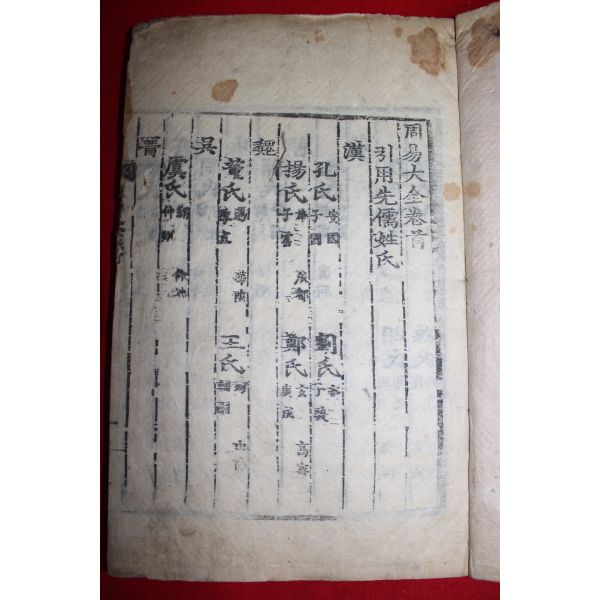 周易大全卷首
引用先儒姓氏
漢
孔氏 安國 子國 劉氏 子
揚氏 雄 子雲 成都 鄭氏 玄 康成 高密
魏
董氏 遇 季直 王氏
吳
虞氏 翻 仲翔 餘姚
晉